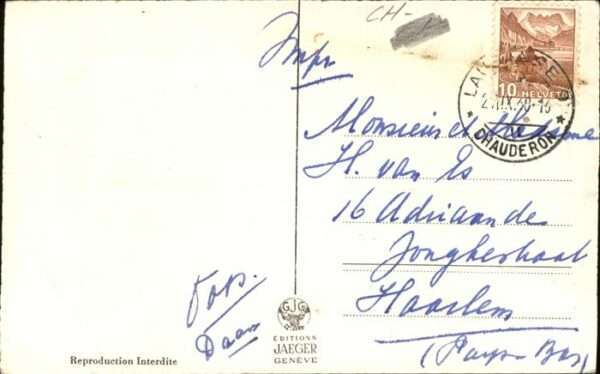 CH-
Impr
10 HELVETIA
LAUSANNE
IX.39-15
CHAUDERON
Monsieur et Madame
H. van Es
16 Adriaan de
Jonghestraat
Haarlem
(Pays-Bas)
Daan
GJG
EDITIONS
JAEGER
GENÈVE
Reproduction Interdite